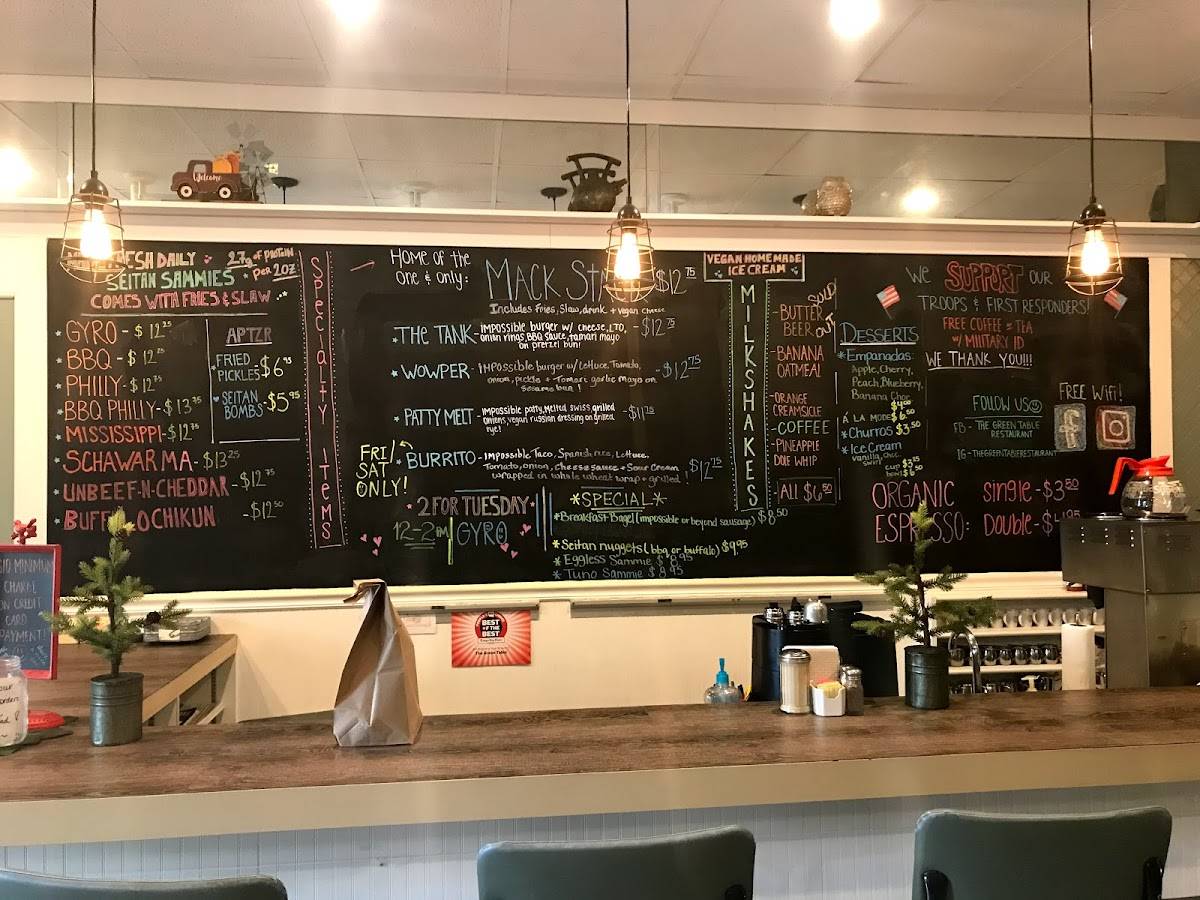 Welcome
FRESH DAILY
27g OF PROTEIN
PER 2OZ
SEITAN SAMMIES
COMES WITH FRIES & SLAW
GYRO - $12.25
BBQ - $12.25
PHILLY - $12.75
BBQ PHILLY - $13.25
MISSISSIPPI - $12.75
SCHAWARMA - $13.25
UNBEEF-N-CHEDDAR - $12.75
OCHIKUN - $12.50
APTZR
FRIED PICKLES $6.95
SEITAN BOMBS $5.95
SPECIALTY ITEMS
HOME OF THE
ONE & ONLY:
MACK $12.75
Includes fries, slaw, drink + vegan cheese
THE TANK - Impossible burger w/ cheese, LTO, - $12.75
onion rings, BBQ sauce, tamari mayo
on pretzel bun!
WOWPER - Impossible burger w/ Lettuce, Tomato, - $12.75
onion, pickle + Tamari garlic mayo on
sesame bun!
PATTY MELT - Impossible patty, Melted swiss, grilled - $11.75
onions, vegan russian dressing on grilled
rye!
FRI/
SAT
ONLY!
BURRITO - Impossible Taco, Spanish rice, Lettuce,
Tomato, onion, cheese sauce + Sour Cream $12.75
wrapped in whole wheat wrap + grilled!
2 FOR TUESDAY
12-2PM GYRO
*SPECIAL*
*Breakfast Bagel (impossible or beyond sausage) $8.50
*Seitan nuggets (bbq or buffalo) $9.95
*Eggless Sammie $8.95
*Tuno Sammie $8.95
VEGAN HOMEMADE
ICE CREAM
MILKSHAKES
-BUTTER
BEER
SOLD
OUT
-BANANA
OATMEAL
-ORANGE
CREAMSICLE
-COFFEE
-PINEAPPLE
DOLE WHIP
ALL $6.50
DESSERTS
*Empanadas:
Apple, Cherry,
Peach, Blueberry,
Banana Choc
$4.00
Á LA MODE $6.50
*Churros $3.50
*Ice Cream
vanilla, choc,
swirl
cup
bowl
WE SUPPORT OUR
TROOPS & FIRST RESPONDERS!
FREE COFFEE or TEA
W/ MILITARY ID
WE THANK YOU!!!
FOLLOW US
FB - THE GREEN TABLE
RESTAURANT
IG - THEGREENTABLERESTAURANT
FREE WiFi!
f
ORGANIC
ESPRESSO:
Single - $3.50
Double -
$10 MINIMUM
CHARGE
ON CREDIT
CARD
PAYMENT!
BEST
OF THE
BEST
The Green Table